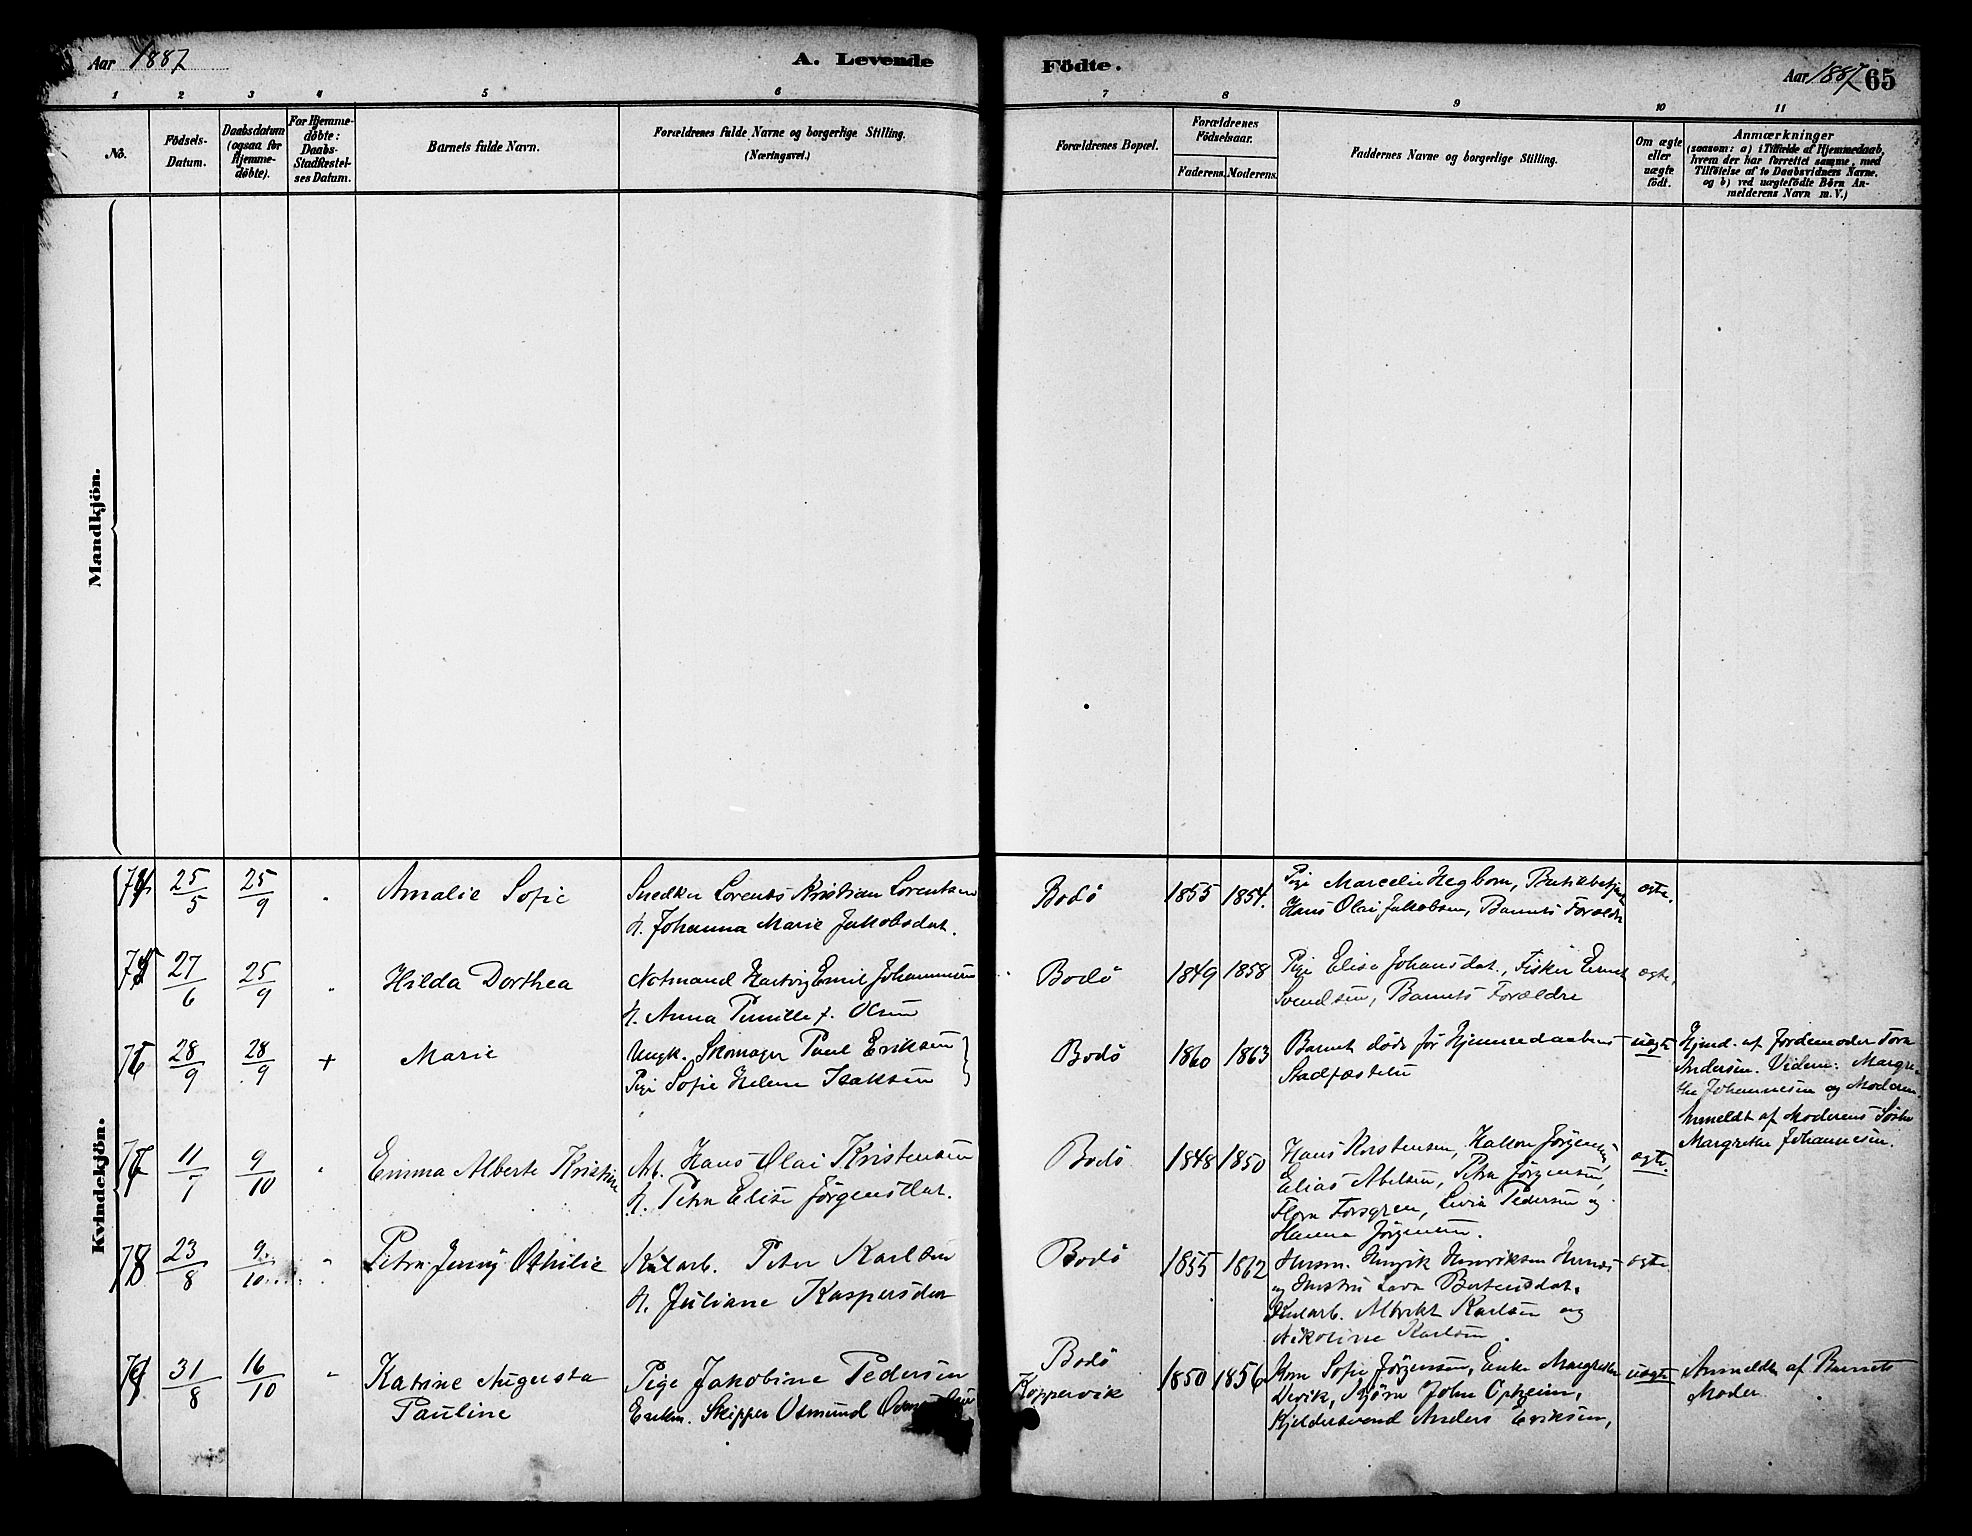 Aar 1887
A. Levende
Födte.
Aar 1887 65
1 2 3 4 5 6 7 8 9 10 11
No.
Födsels-
Datum.
Daabsdatum
(ogsaa for
Hjemme-
døbte).
For Hjemme-
døbte:
Daabs-
Stadfæstel-
ses Datum.
Barnets fulde Navn.
Forældrenes fulde Navne og borgerlige Stilling.
(Næringsvei.)
Forældrenes Bopæl.
Forældrenes
Födselsaar.
Faderens. Moderens.
Faddernes Navne og borgerlige Stilling.
Om ægte
eller
uægte
födt.
Anmærkninger
(saasom: a) i Tilfælde af Hjemmedaab,
hvem der har forrettet samme, med
Tilföielse af to Daabsvidners Navne.
og b) ved uægtefödte Börn An-
melderens Navn m. V.)
Mandkjön.
Kvindekjön.
74 25/5 25/9 Amalie Sofie
Snedker Lorents Kristian Lorentsen
H. Johanna Marie Jakobsdat.
Bodö 1855 1854.
Pige Marcelie Hegbom,
Hans Olai Jakobsen, Barnets Forældre
ægte.
75 27/6 25/9 Hilda Dorthea
Notmand Hartvig Emil Johannesen
H. Anna Pernille f. Olsen
Bodö 1849 1858
Pige Elisa Johansdat., Fisker
Svendsen, Barnets Forældre
ægte.
76 28/9 28/9 + Marie
Ungk. Skomager Paul Eriksen
Pige Sofie Helene Isaksen
Bodö 1860 1863
Barnet döde för Hjemmedaabens
Stadfæstelse
uægte
Hjmd. af Jordemoder Tora
Andersen. Vidner: Margre-
the Johannesen og Moderen.
Anmeldt af Moderens Söster
Margrethe Johannesen.
77 11/7 9/10 Emma Alberte Kristine
Arb. Hans Olai Kristensen
H. Petra Elise Jörgensdat.
Bodö 1848 1850
Hans Kristensen, Jörgensen,
Elias Abelsen, Petra Jörgensen,
Flora Forsgren, Pedersen og
Hanna Jörgensen.
ægte.
78 23/8 9/10 Petra Jenny Othilie
Kularb. Peter Karlsen
H. Juliane Kaspersdat
Bodö 1855 1862
Husm. Henrik Henriksen
og Hustru Bertensdat.
Kularb. Albrikt Karlsen og
Nikoline Karlsen.
ægte
79 31/8 16/10 Katrine Augusta
Pauline
Pige Jakobine Pedersen
Enkem. Skipper Osmund
Bodö
Koppervik
1850 1856
Sofie Jörgensen, Enke Margrethe
Björn John Opheim,
Kjeldersvend Anders Eriksen,
uægte
Anmeldt af Barnets
Moder